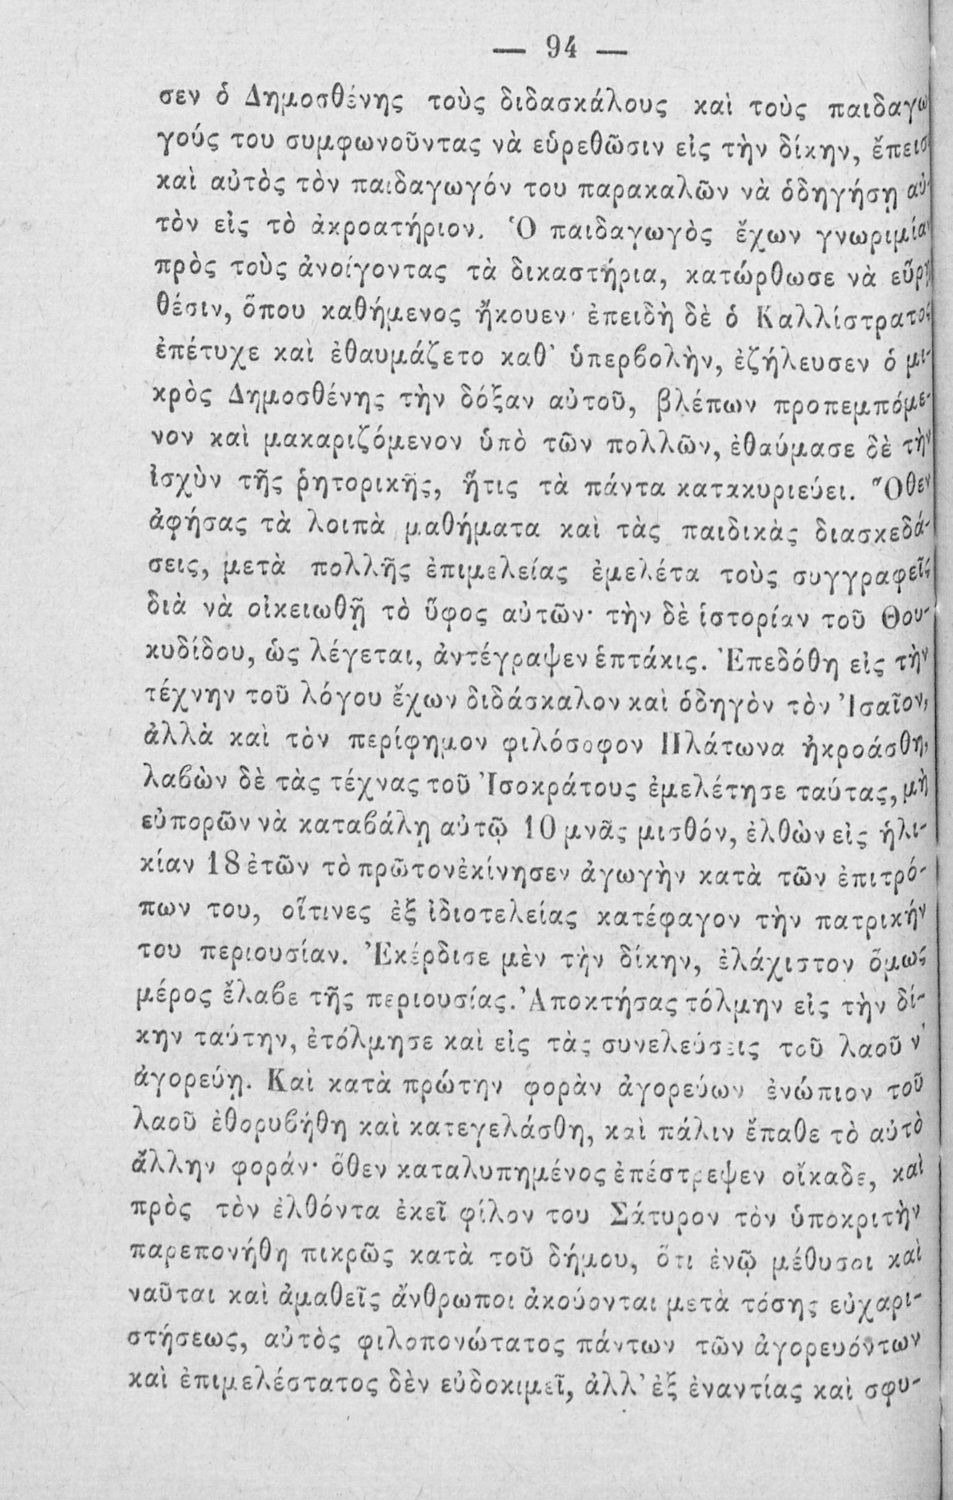 — 94 —
σεν ὁ Δημοσθένης τοὺς διδασκάλους καὶ τοὺς παιδαγω
γούς του συμφωνοῦντας νὰ εὑρεθῶσιν εἰς τὴν δίκην, ἔπεισ
καὶ αὐτὸς τὸν παιδαγωγόν του παρακαλῶν νὰ ὁδηγήσῃ αὐ-
τὸν εἰς τὸ ἀκροατήριον. Ὁ παιδαγωγὸς ἔχων γνωριμίαν
πρὸς τοὺς ἀνοίγοντας τὰ δικαστήρια, κατώρθωσε νὰ εὕρῃ
θέσιν, ὅπου καθήμενος ἤκουεν· ἐπειδὴ δὲ ὁ Καλλίστρατος
ἐπέτυχε καὶ ἐθαυμάζετο καθ᾽ ὑπερβολὴν, ἐζήλευσεν ὁ μι-
κρὸς Δημοσθένης τὴν δόξαν αὐτοῦ, βλέπων προπεμπόμε-
νον καὶ μακαριζόμενον ὑπὸ τῶν πολλῶν, ἐθαύμασε δὲ τὴν
ἰσχὺν τῆς ῥητορικῆς, ἥτις τὰ πάντα κατακυριεύει. Ὅθεν
ἀφήσας τὰ λοιπὰ μαθήματα καὶ τὰς παιδικὰς διασκεδά-
σεις, μετὰ πολλῆς ἐπιμελείας ἐμελέτα τοὺς συγγραφεῖς
διὰ νὰ οἰκειωθῇ τὸ ὕφος αὐτῶν· τὴν δὲ ἱστορίαν τοῦ Θου-
κυδίδου, ὡς λέγεται, ἀντέγραψεν ἑπτάκις. Ἐπεδόθη εἰς τὴν
τέχνην τοῦ λόγου ἔχων διδάσκαλον καὶ ὁδηγὸν τὸν Ἰσαῖον,
ἀλλὰ καὶ τὸν περίφημον φιλόσοφον Πλάτωνα ἠκροάσθη,
λαβὼν δὲ τὰς τέχνας τοῦ Ἰσοκράτους ἐμελέτησε ταύτας, μὴ
εὐπορῶν νὰ καταβάλῃ αὐτῷ 10 μνᾶς μισθόν, ἐλθὼν εἰς ἡλι-
κίαν 18 ἐτῶν τὸ πρῶτον ἐκίνησεν ἀγωγὴν κατὰ τῶν ἐπιτρό-
πων του, οἵτινες ἐξ ἰδιοτελείας κατέφαγον τὴν πατρικήν
του περιουσίαν. Ἐκέρδισε μὲν τὴν δίκην, ἐλάχιστον ὅμως
μέρος ἔλαβε τῆς περιουσίας. Ἀποκτήσας τόλμην εἰς τὴν δί-
κην ταύτην, ἐτόλμησε καὶ εἰς τὰς συνελεύσεις τοῦ λαοῦ ν᾽
ἀγορεύῃ. Καὶ κατὰ πρώτην φορὰν ἀγορεύων ἐνώπιον τοῦ
λαοῦ ἐθορυβήθη καὶ κατεγελάσθη, καὶ πάλιν ἔπαθε τὸ αὐτὸ
ἄλλην φοράν· ὅθεν καταλυπημένος ἐπέστρεψεν οἴκαδε, καὶ
πρὸς τὸν ἐλθόντα ἐκεῖ φίλον του Σάτυρον τὸν ὑποκριτὴν
παρεπονήθη πικρῶς κατὰ τοῦ δήμου, ὅτι ἐνῷ μέθυσοι καὶ
ναῦται καὶ ἀμαθεῖς ἄνθρωποι ἀκούονται μετὰ τόσης εὐχαρι-
στήσεως, αὐτὸς φιλοπονώτατος πάντων τῶν ἀγορευόντων
καὶ ἐπιμελέστατος δὲν εὐδοκιμεῖ, ἀλλ᾽ ἐξ ἐναντίας καὶ σφυ-